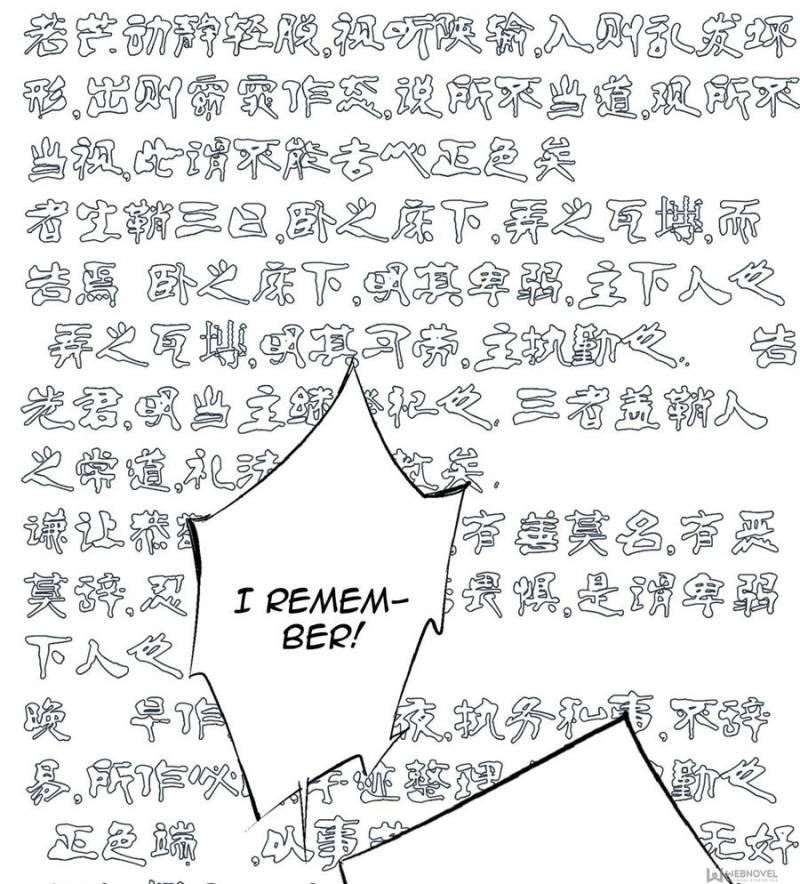 动静轻脱,视听陕输,入则乱发坏
形,出则作,说所不当道,观所不
当视,此谓不能去心正色矣
者生鞘三日,卧之床下,弄之瓦塼,而
告焉 卧之床下,明其卑弱,主下人也
弄之瓦塼,明其习劳,主执勤也. 告
先君,明当主继祀也. 三者盖鞘人
之常道,礼法 矣.
谦让恭 ,有善莫名,有恶
莫辞,忍 畏惧,是谓卑弱
I REMEM-
BER!
下人也
晚 早作, 夜,执务私事,不辞
易,所作必 手迹整理 勤也
正色端 ,以事 好
WEBNOVEL